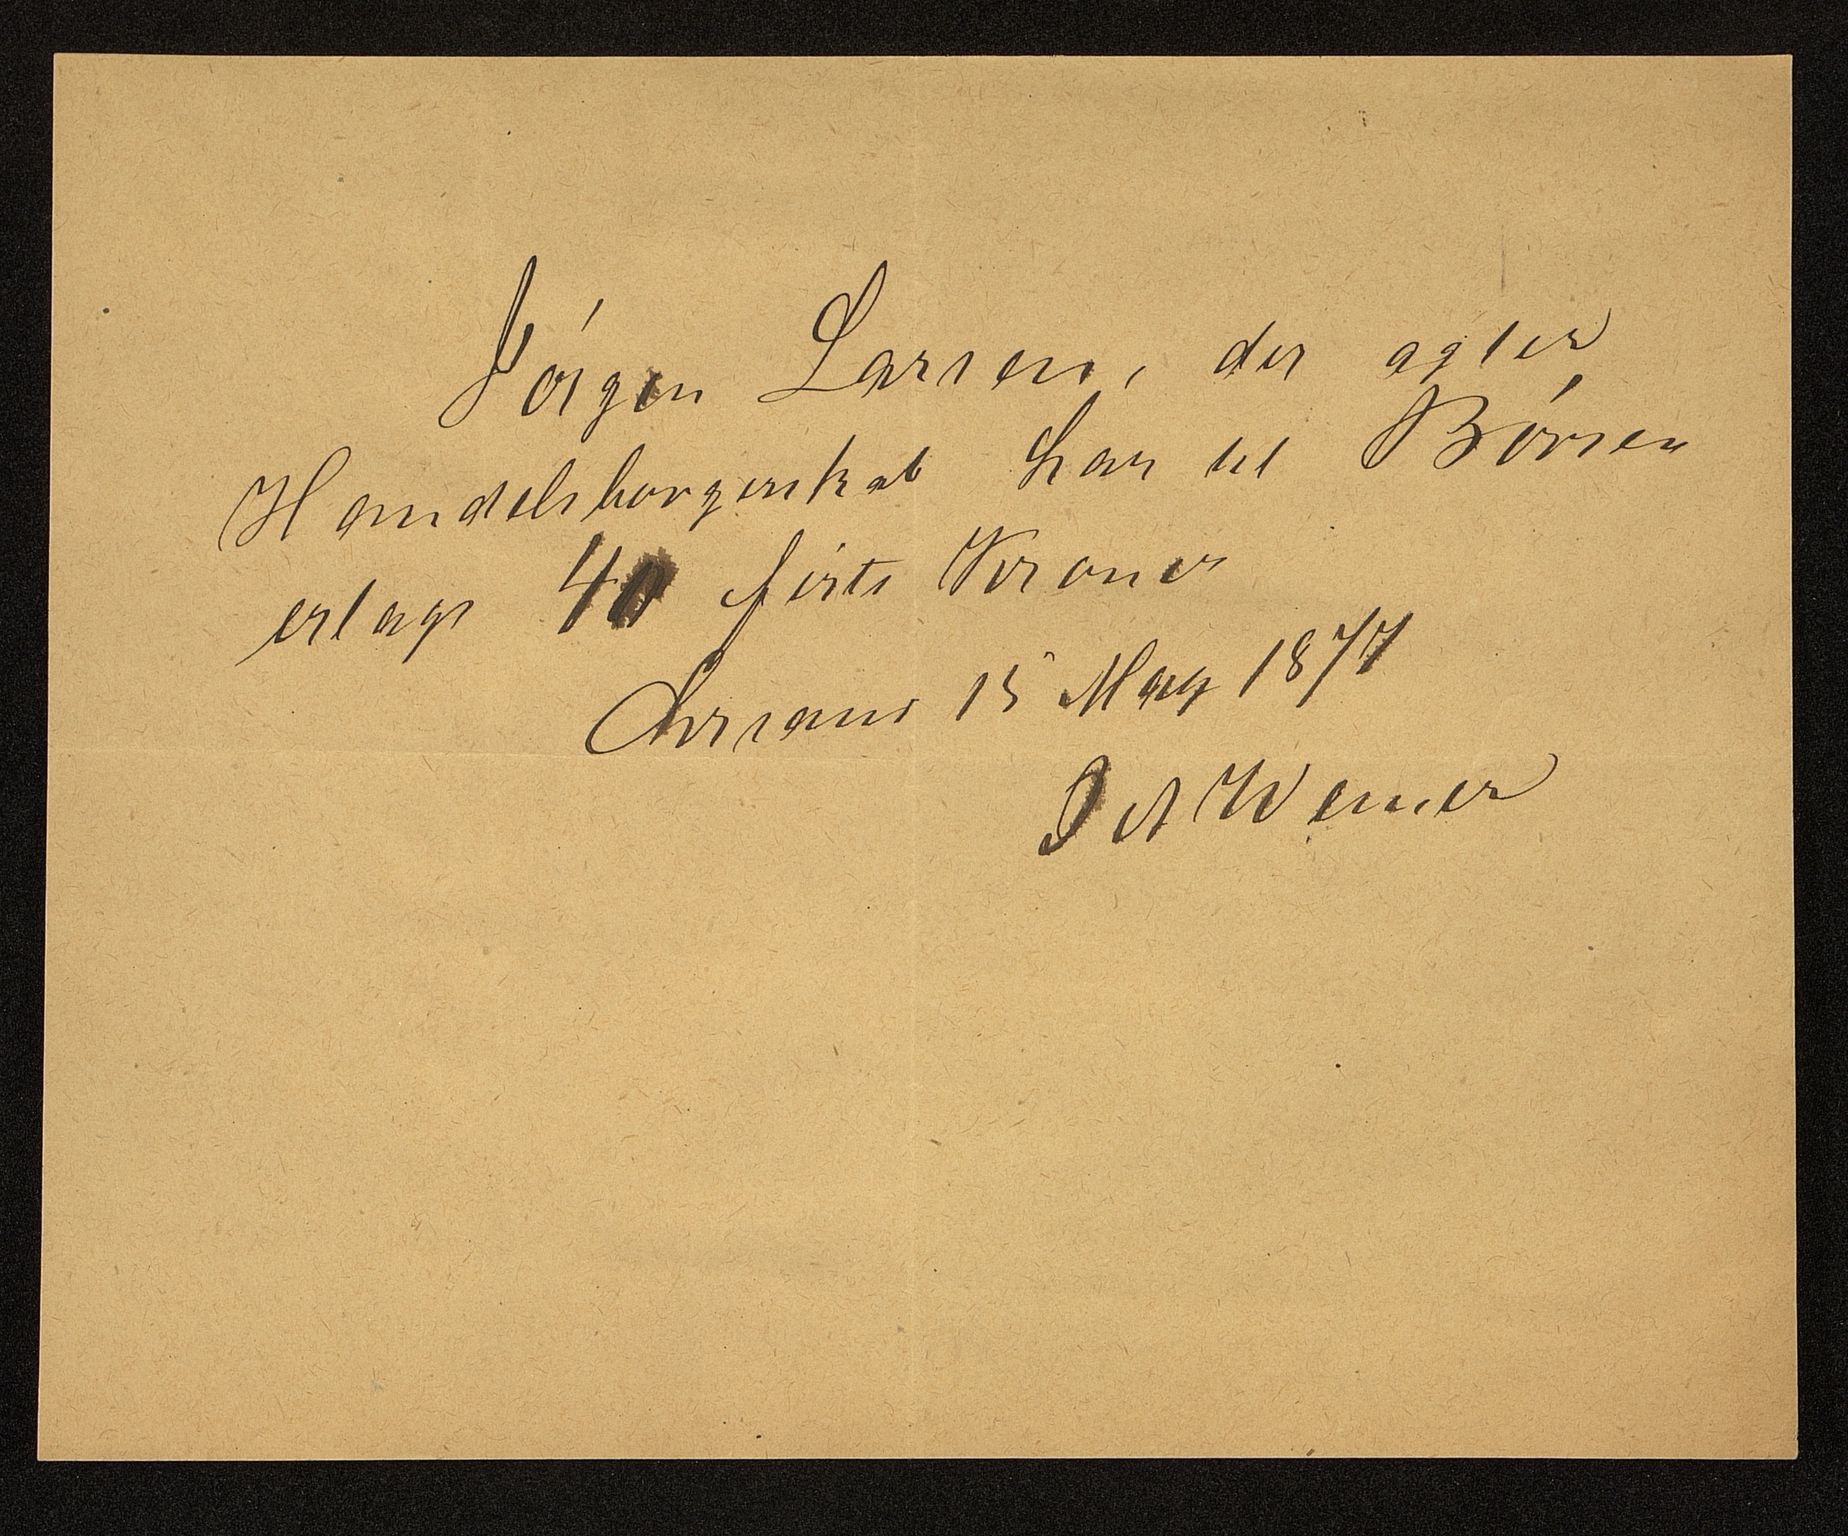 Jørgen Larsen, der agter
Handelsborgerskab har til Børsen
erlagt 40 firti Kroner
Chrsand 15 May 1877
O A Wemer